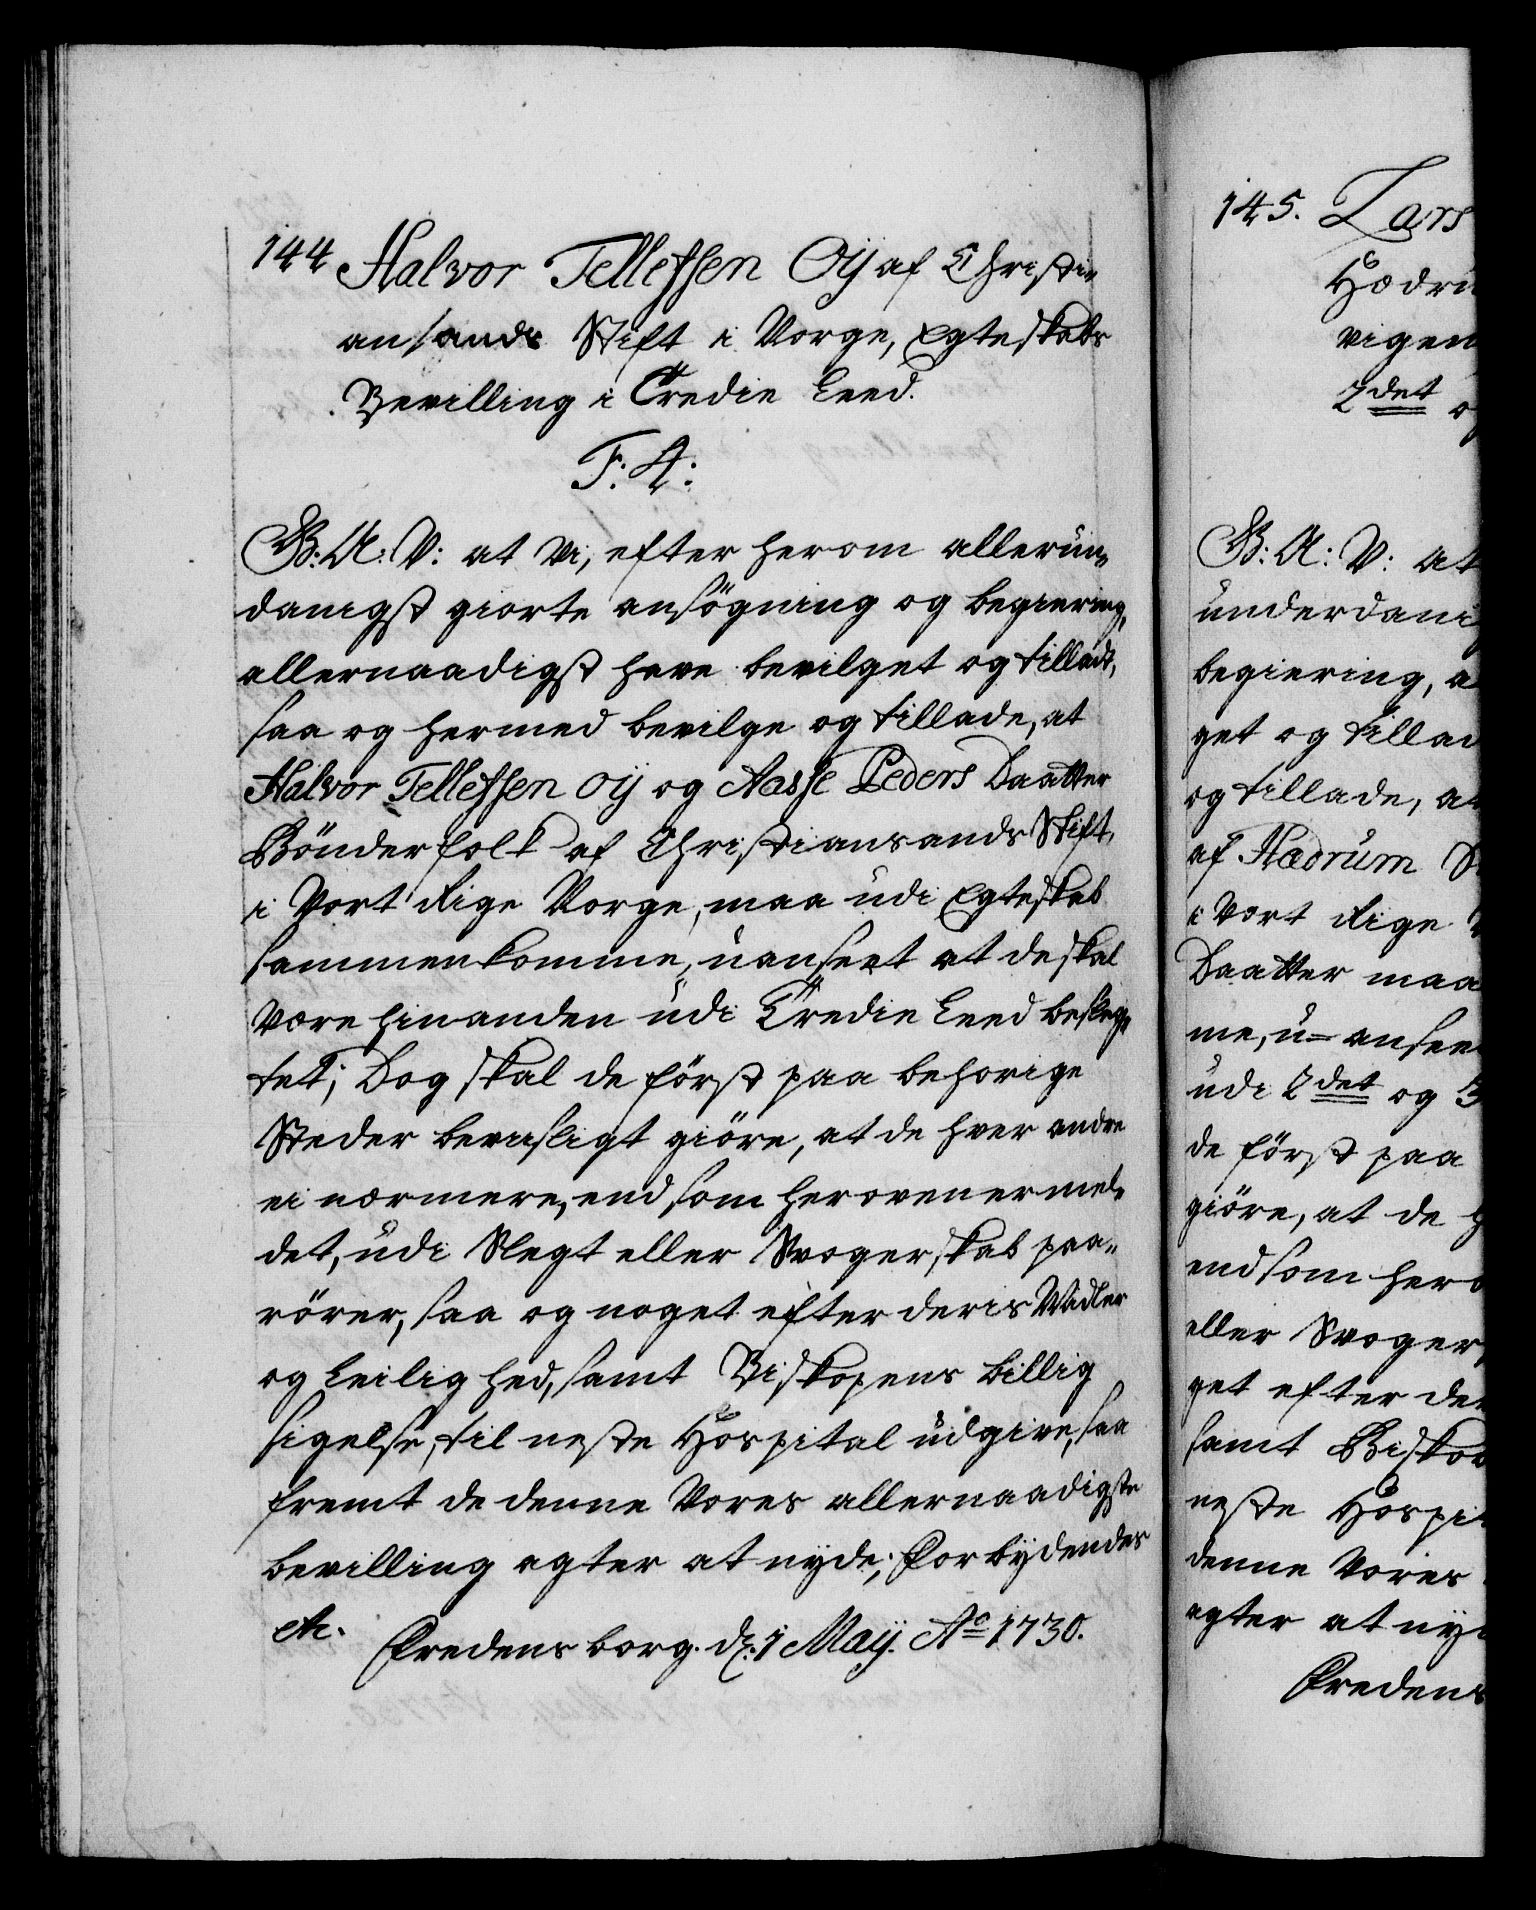 144 Halvor Tellefsen Oÿ af Christi=
ansands Stift i Norge, Egteskabs
Bevilling i Tredie Leed.
F: 4:
G: A: V: at Vi, efter herom allerun=
danigst giorte ansögning og begiering,
allernaadigst have bevilget og tilladt,
saa og hermed bevilge og tillade, at
Halvor Tellefsen Oÿ og Aasse Peders Daatter
Bönderfolk af Christiansands Stift,
i Vort Rige Norge, maa udi Egteskab
sammenkomme, uanseet at de skal
være hinanden udi Tredie Leed besleg=
tet; Dog skal de först paa behorige
Steder bevisligt giöre, at de hver andre
ei nærmere, end som her oven ermel=
det, udi Slegt eller Svogerskab paa=
rörer, saa og noget efter deris Vilkor
og Leilighed, samt Biskopens billig
sigelse, til neste Hospital udgive, saa
fremt de denne Vores allernaadigste
bevilling agter at nyde; Forbydendes
etc.
Fredensborg. d: 1 Maÿ. Ao 1730.
145. Lars
vigen
2det
G: A: V: at
underdani
begiering, a
get og tillad
og tillade, at
af Hædrum
i Vort Rige
Daatter maa
me, u=ansee
udi 2det og 3
de först paa
giöre, at de
end som hero
eller Svoger
get efter de
samt Biskop
neste Hospi
denne Vores
agter at nÿ
Fredens